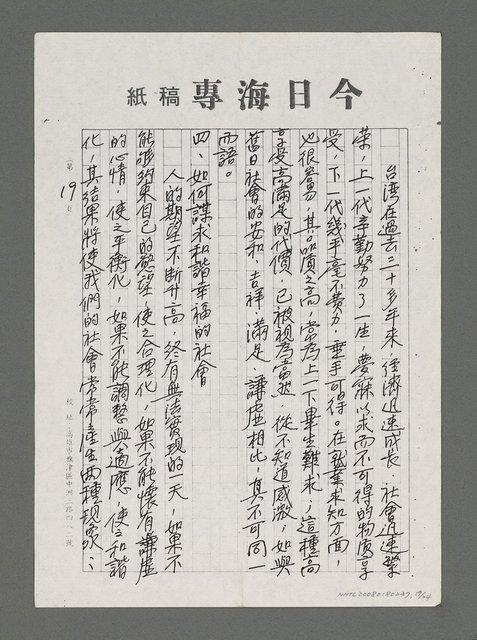 今日海專稿紙
台湾在過去三十多年來，經濟迅速成長，社會迅速繁
榮，上一代辛勤努力了一生，夢寐以求而不可得的物质享
受，下一代幾乎毫不費力，垂手可得。在就業求知方面，
也很奢侈，其品質之高，常為上一下畢生難求，這種高
享受高滿足的代價，已被視為當然，從不知道感激，如與
舊日社會的安和、吉祥、滿足、謙虛相比，真不可同一
而語。
四、如何謀求和諧幸福的社會
人的期望不斷升高，終有無法實現的一天，如果不
能約束自己的慾望，使之合理化，如果不能懷有謙虛
的心情，使之平衡化，如果不能調整與適應，使之和諧
化，其結果將使我們的社會常常產生两種現象：
第19頁
校址：高雄市旗津區中洲路四八二號
NMTL20080180237 19/24